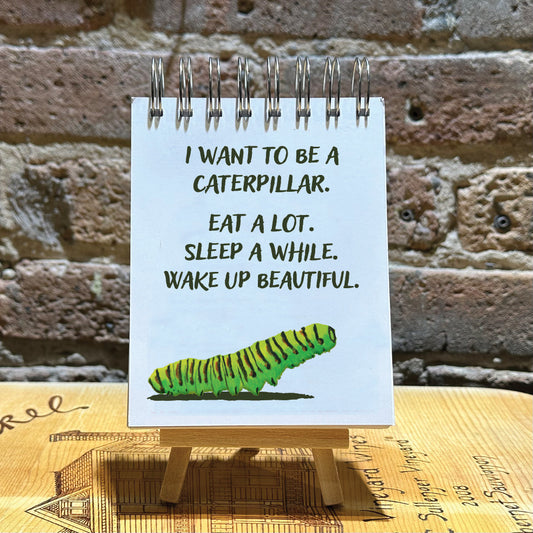 I WANT TO BE A
CATERPILLAR.
EAT A LOT.
SLEEP A WHILE.
WAKE UP BEAUTIFUL.
Vineyard
Sullenger Vineyard
2008
Cabernet Sauvignon